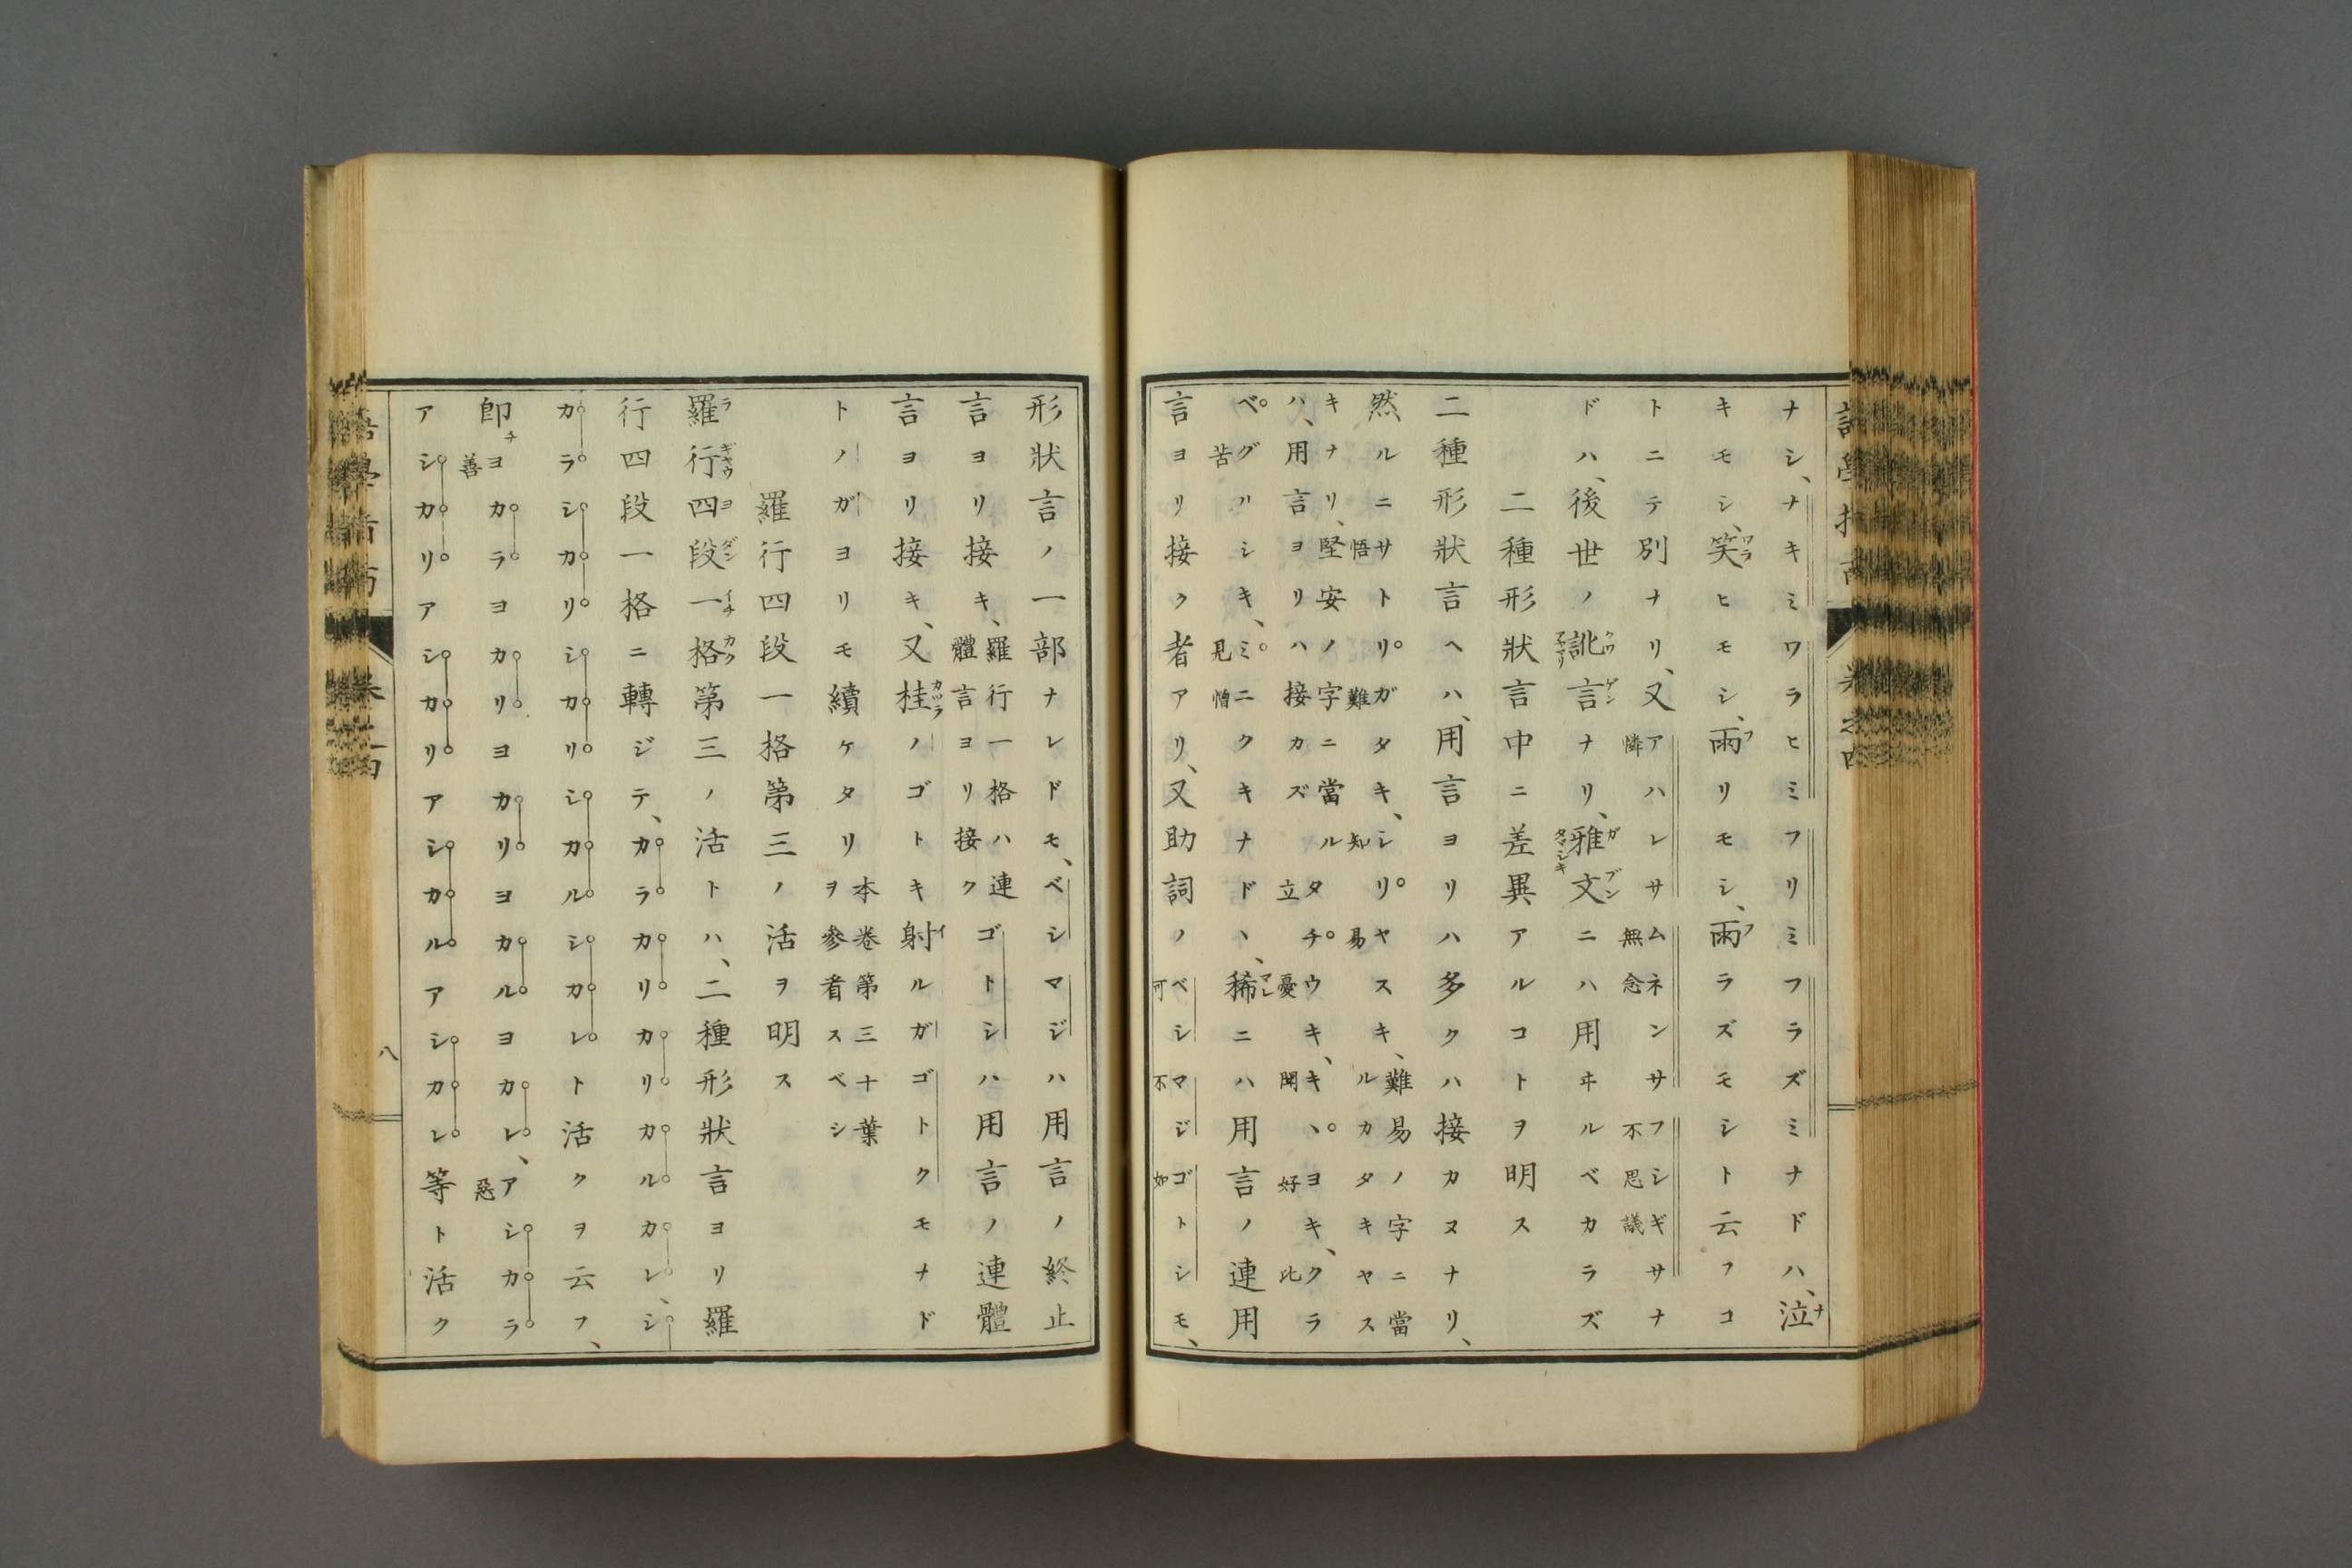 ナシ、ナキミワラヒミフリミフラズミナドハ、泣
キモシ、笑ヒモシ、雨リモシ、雨ラズモシト云フコ
トニテ別ナリ、又アハレサムネンサフシギサナ
ドハ、後世ノ訛言ナリ、雅文ニハ用ヰルベカラズ
二種形狀言中ニ差異アルコトヲ明ス
二種形狀言ヘハ、用言ヨリハ多クハ接カヌナリ、
然ルニサトリガタキ、シリヤスキ、難易ノ字ニ當ルカタキヤス
キナリ、堅安ノ字ニ當ルハ、用言ヨリハ接カズタチウキ、キヽヨキ、クラ
ベグルシキ、ミニクキナドヽ、稀ニハ用言ノ連用
言ヨリ接ク者アリ、又助詞ノベシマジゴトシモ、
形狀言ノ一部ナレドモ、ベシマジハ用言ノ終止
言ヨリ接キ、羅行一格ハ連體言ヨリ接クゴトシハ用言ノ連體
言ヨリ接キ、又桂ノゴトキ射ルガゴトクモナド
トノガヨリモ續ケタリ本卷第三十葉ヲ參看スベシ
羅行四段一格第三ノ活ヲ明ス
羅行四段一格第三ノ活トハ、二種形狀言ヨリ羅
行四段一格ニ轉ジテ、カラカリカリカルカレ、シ
カラシカリシカリシカルシカレト活クヲ云フ、
卽チヨカラヨカリヨカリヨカルヨカレ、アシカラ
アシカリアシカリアシカルアシカレ等ト活ク
八